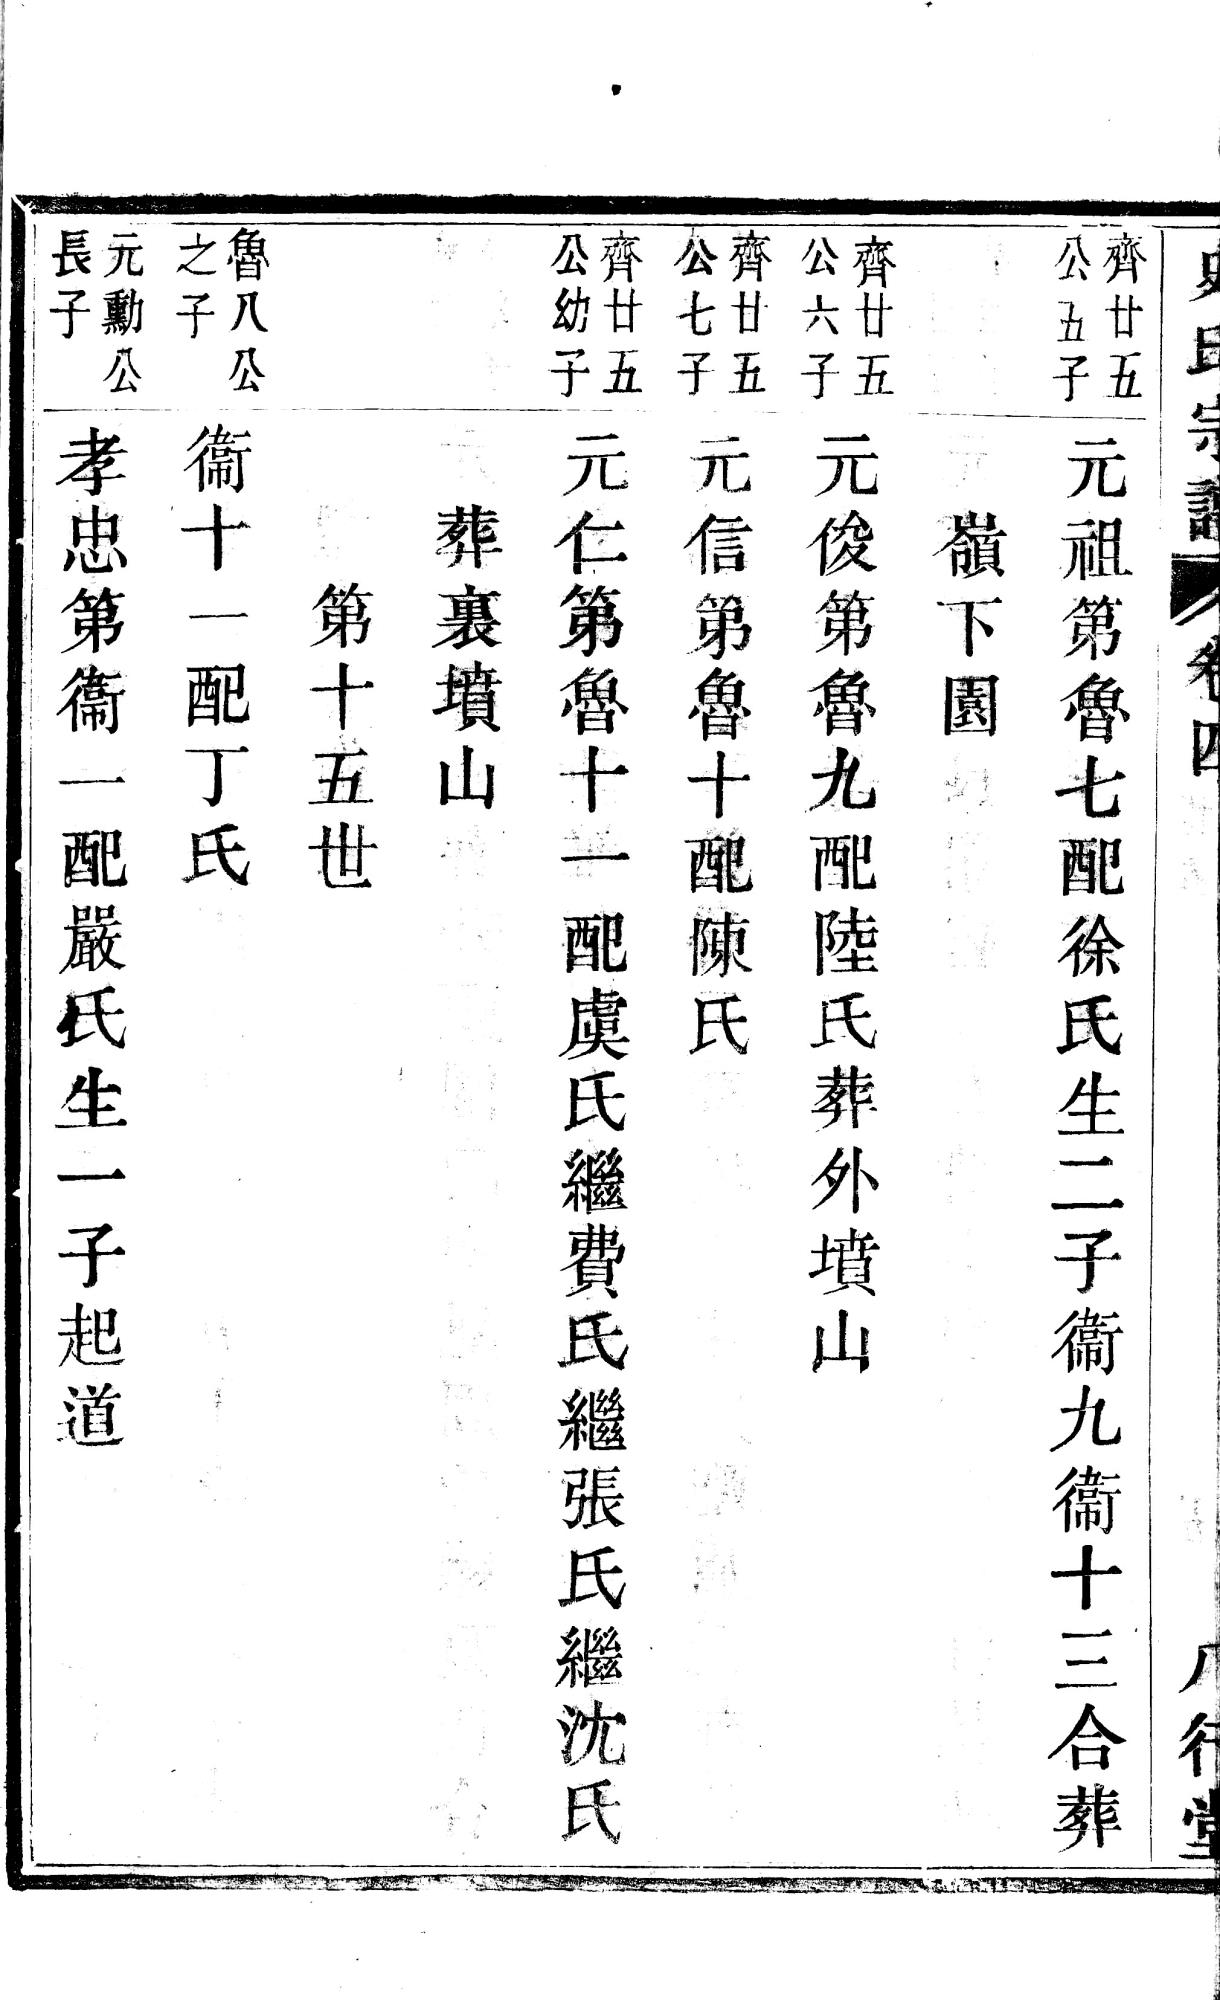 史氏宗譜 卷四 八行堂
齊廿五
公五子
元祖第魯七配徐氏生二子衞九衞十三合葬
嶺下園
齊廿五
公六子
元俊第魯九配陸氏葬外墳山
齊廿五
公七子
元信第魯十配陳氏
齊廿五
公幼子
元仁第魯十一配虞氏繼費氏繼張氏繼沈氏
葬裏墳山
第十五世
魯八公
之子
衞十一配丁氏
元勳公
長子
孝忠第衞一配嚴氏生一子起道